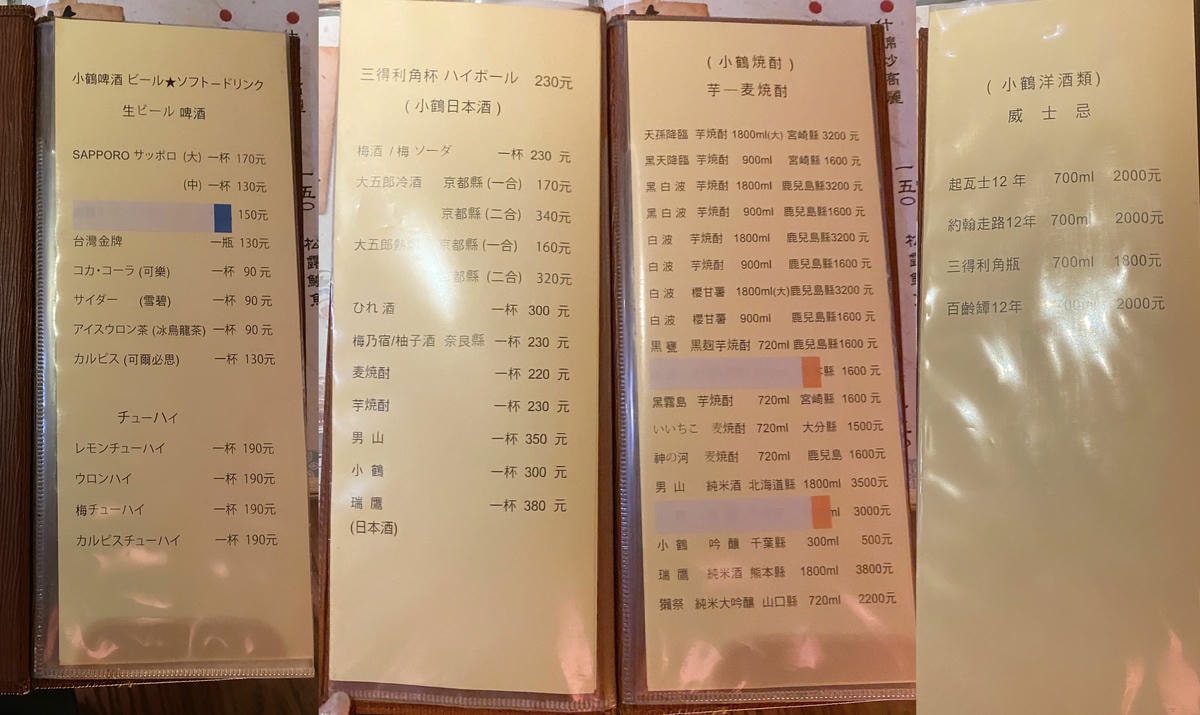 小鶴啤酒 ビール★ソフトードリンク
生ビール 啤酒
SAPPORO サッポロ (大) 一杯 170元
(中) 一杯 130元
150元
台灣金牌 一瓶 130元
コカ・コーラ (可樂) 一杯 90元
サイダー (雪碧) 一杯 90元
アイスウロン茶 (冰烏龍茶) 一杯 90元
カルピス (可爾必思) 一杯 130元
チューハイ
レモンチューハイ 一杯 190元
ウロンハイ 一杯 190元
梅チューハイ 一杯 190元
カルピスチューハイ 一杯 190元
三得利角杯 ハイボール 230元
(小鶴日本酒)
梅酒 / 梅 ソーダ 一杯 230 元
大五郎冷酒 京都縣 (一合) 170元
京都縣 (二合) 340元
大五郎 京都縣 (一合) 160元
都縣 (二合) 320元
ひれ 酒 一杯 300 元
梅乃宿/柚子酒 奈良縣 一杯 230 元
麦焼酎 一杯 220 元
芋焼酎 一杯 230 元
男 山 一杯 350 元
小 鶴 一杯 300 元
瑞 鷹 一杯 380 元
(日本酒)
(小鶴焼酎)
芋—麦焼酎
天孫降臨 芋焼酎 1800ml(大) 宮崎縣 3200 元
黒天降臨 芋焼酎 900ml 宮崎縣 1600 元
黒 白 波 芋焼酎 1800ml 鹿兒島縣3200 元
黒 白 波 芋焼酎 900ml 鹿兒島縣1600 元
白 波 芋焼酎 1800ml 鹿兒島縣3200 元
白 波 芋焼酎 900ml 鹿兒島縣1600 元
白 波 櫻甘薯 1800ml(大)鹿兒島縣3200 元
白 波 櫻甘薯 900ml 鹿兒島縣1600 元
黒 甕 黒麹芋焼酎 720ml 鹿兒島縣1600 元
縣 1600 元
黒霧島 芋焼酎 720ml 宮崎縣 1600 元
いいちこ 麦焼酎 720ml 大分縣 1500元
神の河 麦焼酎 720ml 鹿兒島 1600元
男 山 純米酒 北海道縣 1800ml 3500元
ml 3000元
小 鶴 吟 釀 千葉縣 300ml 500元
瑞 鷹 純米酒 熊本縣 1800ml 3800元
獺祭 純米大吟釀 山口縣 720ml 2200元
(小鶴洋酒類)
威 士 忌
起瓦士12 年 700ml 2000元
約翰走路12年 700ml 2000元
三得利角瓶 700ml 1800元
百齡罈12年 700ml 2000元